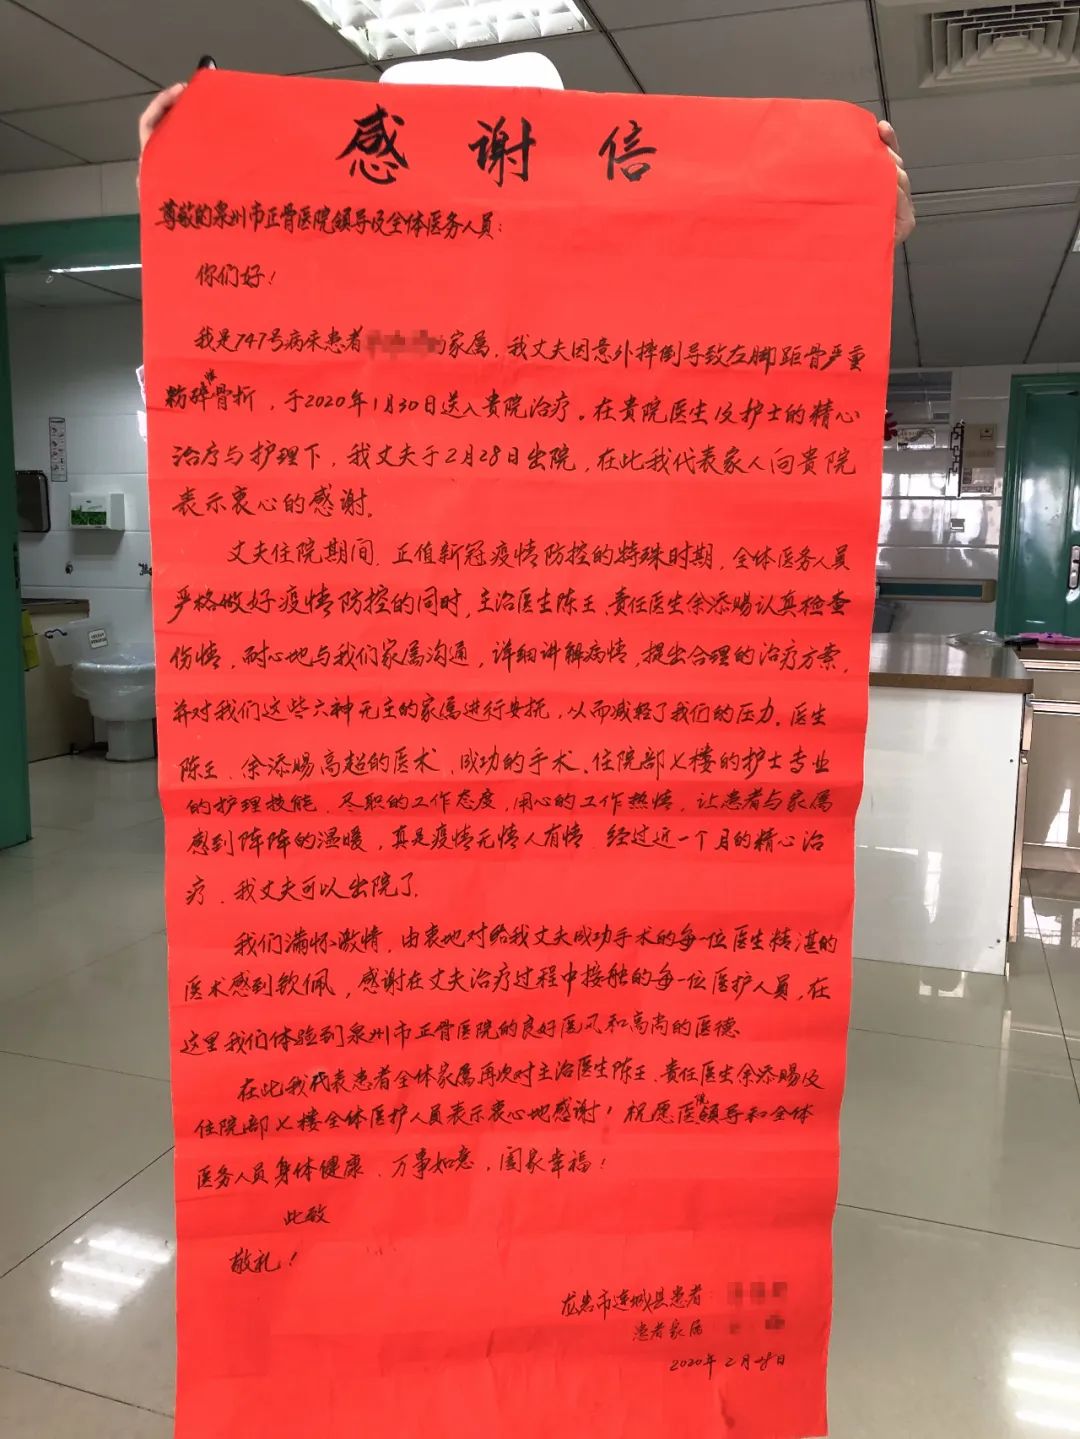 感谢信
尊敬的泉州市正骨医院领导及全体医务人员：
你们好！
我是747号病床患者的家属，我丈夫因意外摔倒导致左脚距骨严重
粉碎性骨折，于2020年1月30日送入贵院治疗。在贵院医生及护士的精心
治疗与护理下，我丈夫于2月28日出院，在此我代表家人向贵院
表示衷心的感谢。
丈夫住院期间，正值新冠疫情防控的特殊时期，全体医务人员
严格做好疫情防控的同时，主治医生陈王、责任医生余添赐认真检查
伤情，耐心地与我们家属沟通，详细讲解病情，提出合理的治疗方案，
并对我们这些六神无主的家属进行安抚，从而减轻了我们的压力。医生
陈王、余添赐高超的医术、成功的手术、住院部七楼的护士专业
的护理技能，尽职的工作态度，用心的工作热情，让患者与家属
感到阵阵的温暖，真是疫情无情人有情。经过近一个月的精心治
疗，我丈夫可以出院了。
我们满怀激情，由衷地对给我丈夫成功手术的每一位医生精湛的
医术感到钦佩，感谢在丈夫治疗过程中接触的每一位医护人员，在
这里我们体验到泉州市正骨医院的良好医风和高尚的医德。
在此我代表患者全体家属再次对主治医生陈王、责任医生余添赐及
住院部七楼全体医护人员表示衷心地感谢！祝愿医院领导和全体
医务人员身体健康、万事如意，阖家幸福！
此致
敬礼！
龙岩市连城县患者：
患者家属
2020年2月28日